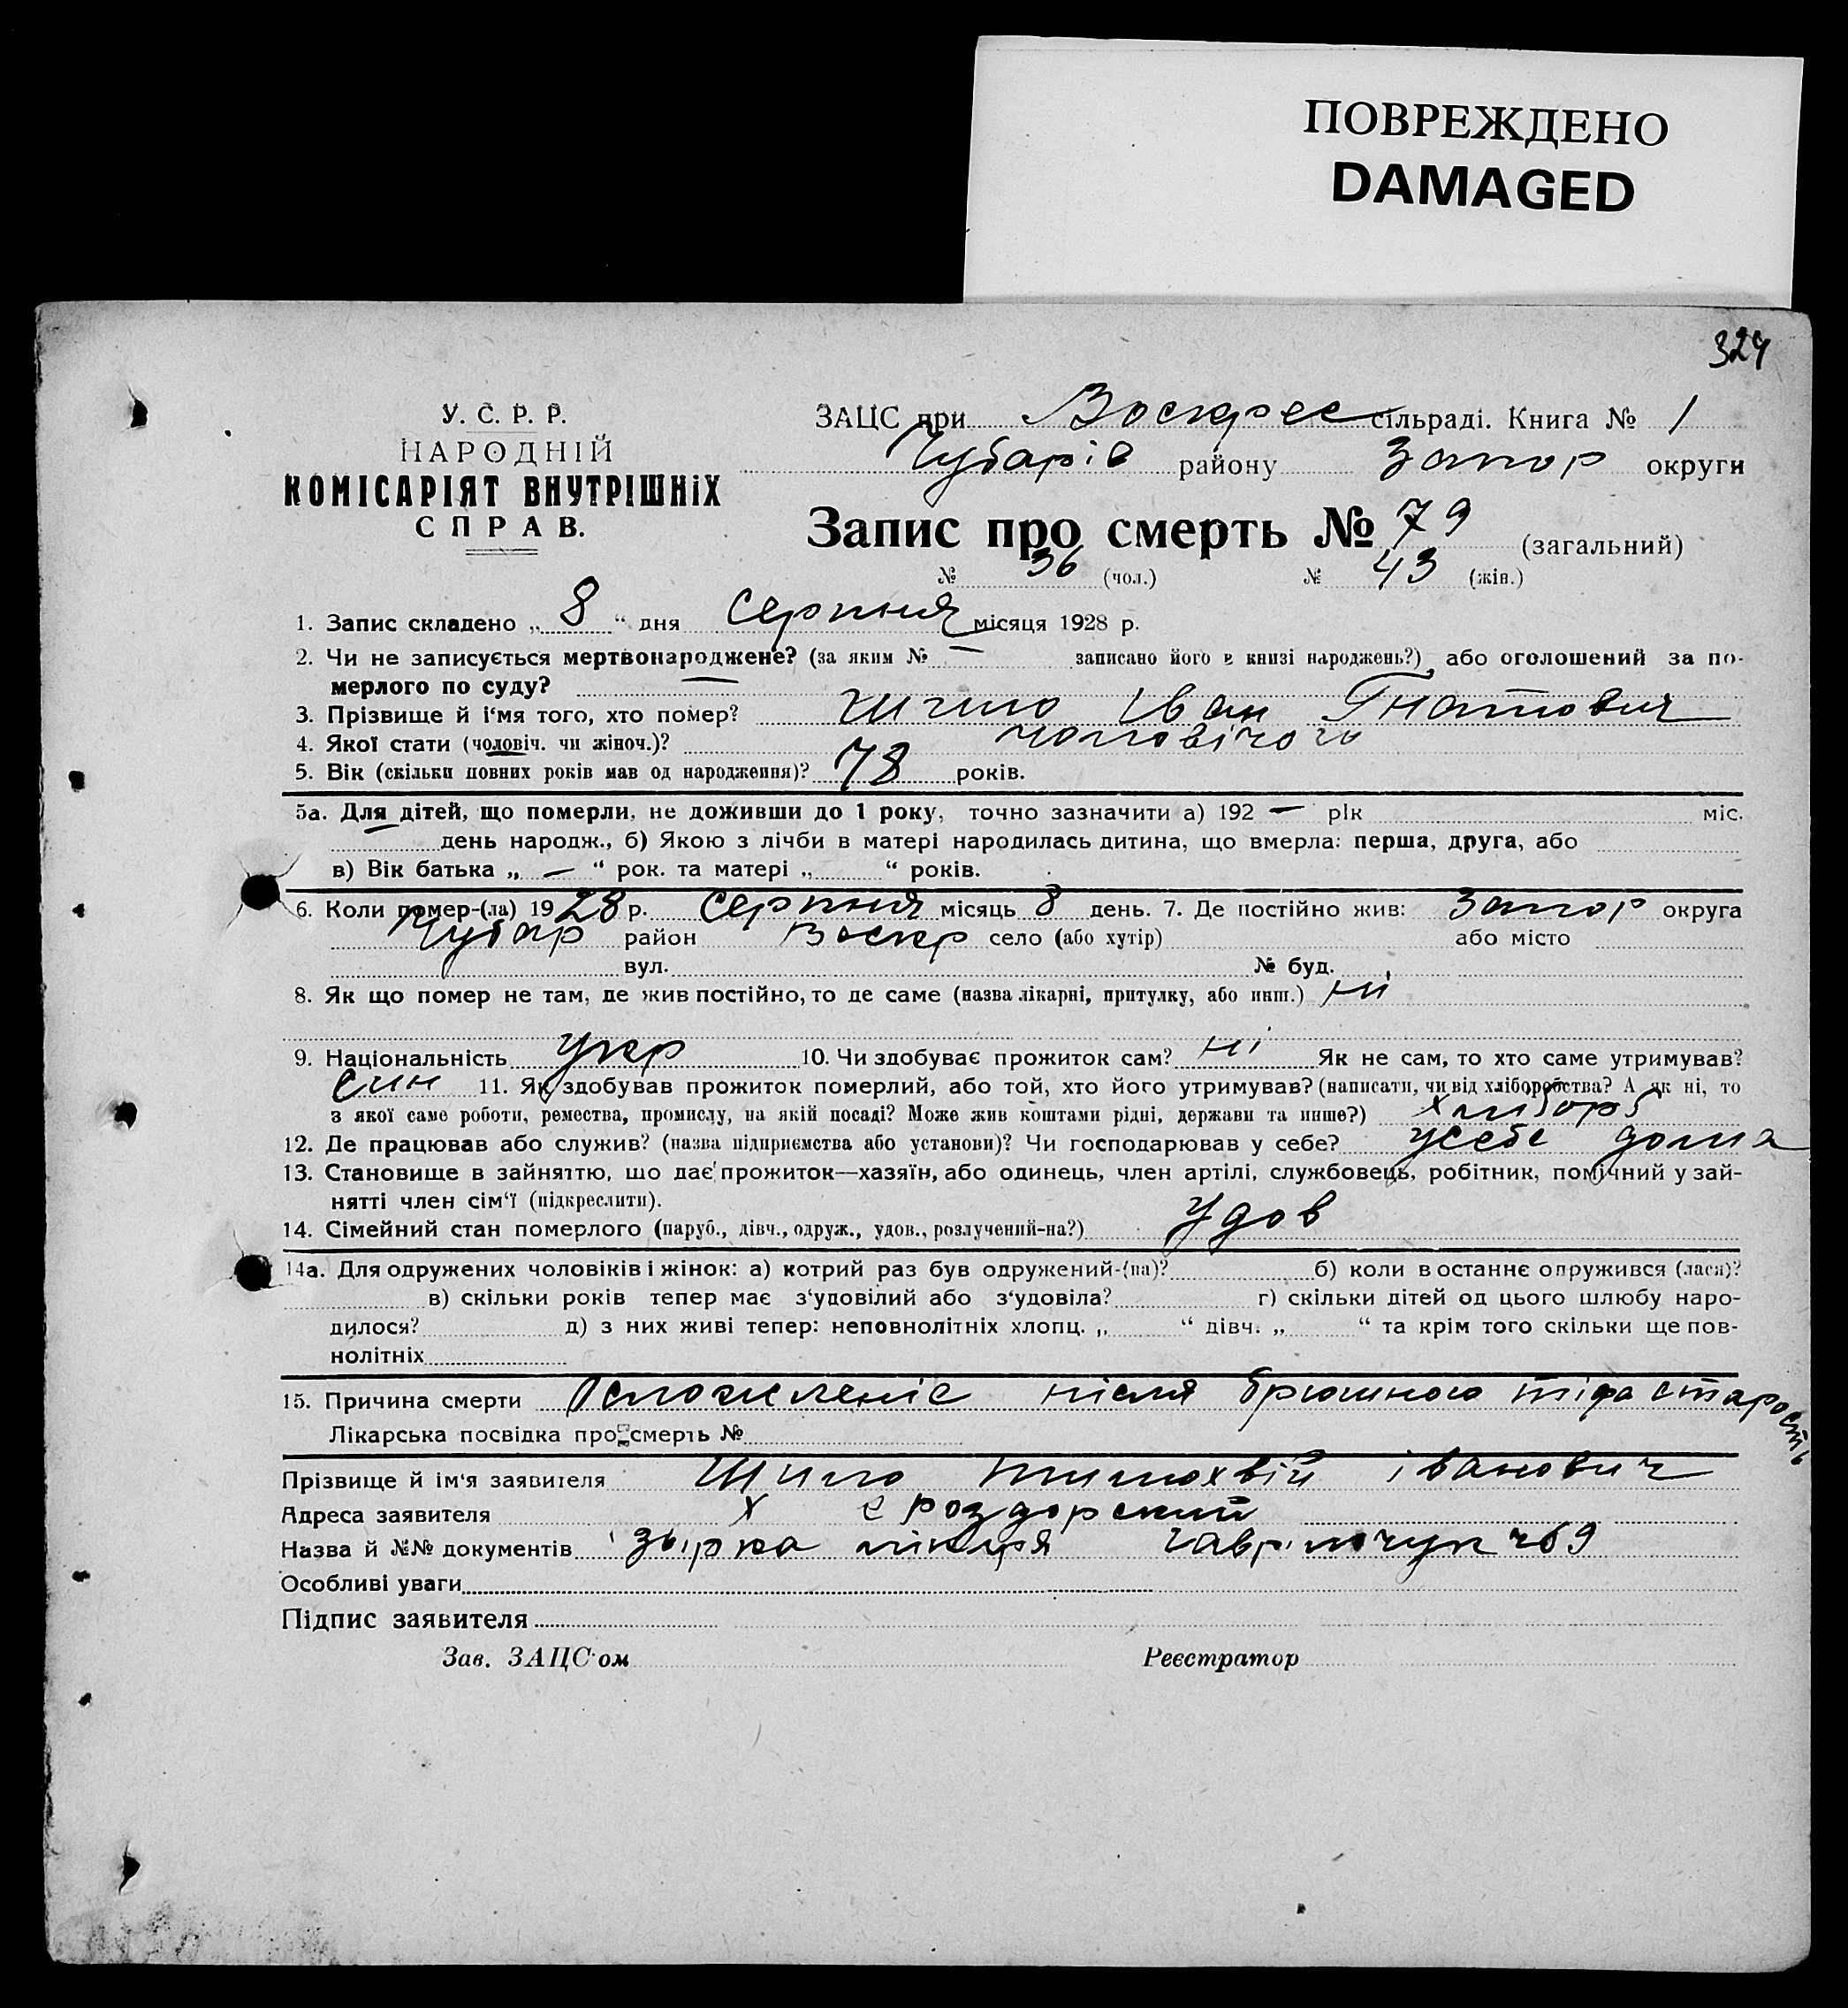 ПОВРЕЖДЕНО
DAMAGED
324
У. С. Р. Р.
НАРОДНІЙ
КОМІСАРІЯТ ВНУТРІШНІХ
СПРАВ.
ЗАЦС при Воскрес сільраді. Книга № 1
Чубарів району Запор округи
Запис про смерть № 79 (загальний)
№ 36 (чол.) № 43 (жін.)
1. Запис складено „ 8 “ дня серпня місяця 1928 р.
2. Чи не записується мертвонароджене? (за яким № — записано його в книзі народжень?) або оголошений за по-
мерлого по суду? —
3. Прізвище й і‘мя того, хто помер? Шило Іван Гнатович
4. Якої статі (чоловіч. чи жіноч.)? чоловічого
5. Вік (скільки повних років мав од народження)? 78 років.
5а. Для дітей, що померли, не доживши до 1 року, точно зазначити а) 192 — рік міс.
— день народж., б) Якою з лічби в матері народилась дитина, що вмерла: перша, друга, або
в) Вік батька „ — “ рок. та матері „ “ років.
6. Коли помер-(ла) 1928 р. серпня місяць 8 день. 7. Де постійно жив: Запор округа
Чубар район Воскр село (або хутір) або місто
вул. № буд.
8. Як що помер не там, де жив постійно, то де саме (назва лікарні, притулку, або инш.) ні
9. Національність укр 10. Чи здобуває прожиток сам? ні Як не сам, то хто саме утримував?
син 11. Як здобував прожиток померлий, або той, хто його утримував? (написати, чи від хліборобства? А як ні, то
з якої саме роботи, ремества, промислу, на якій посаді? Може жив коштами рідні, держави та инше?) хлібороб
12. Де працював або служив? (назва підприємства або установи)? Чи господарював у себе? усебе дома
13. Становище в зайняттю, що дає прожиток—хазяїн, або одинець, член артілі, службовець, робітник, помічний у зай-
нятті член сім‘ї (підкреслити).
14. Сімейний стан померлого (паруб., дівч., одруж., удов., розлучений-на?) Удов
14а. Для одружених чоловіків і жінок: а) котрий раз був одружений-(на)? б) коли востаннє одружився (лася)?
в) скільки років тепер має з‘удовілий або з‘удовіла? г) скільки дітей од цього шлюбу наро-
дилося? д) з них живі тепер: неповнолітніх хлопц. „ “ дівч. „ “ та крім того скільки ще пов-
нолітніх
15. Причина смерти Осложненіє після брюшного тіфа старость
Лікарська посвідка про смерть №
Прізвище й ім‘я заявителя Шило Тимохвій іванович
Адреса заявителя х Єроздорский
Назва й №№ документів лікаря 469
Особливі уваги
Підпис заявителя
Зав. ЗАЦС‘ом Реєстратор